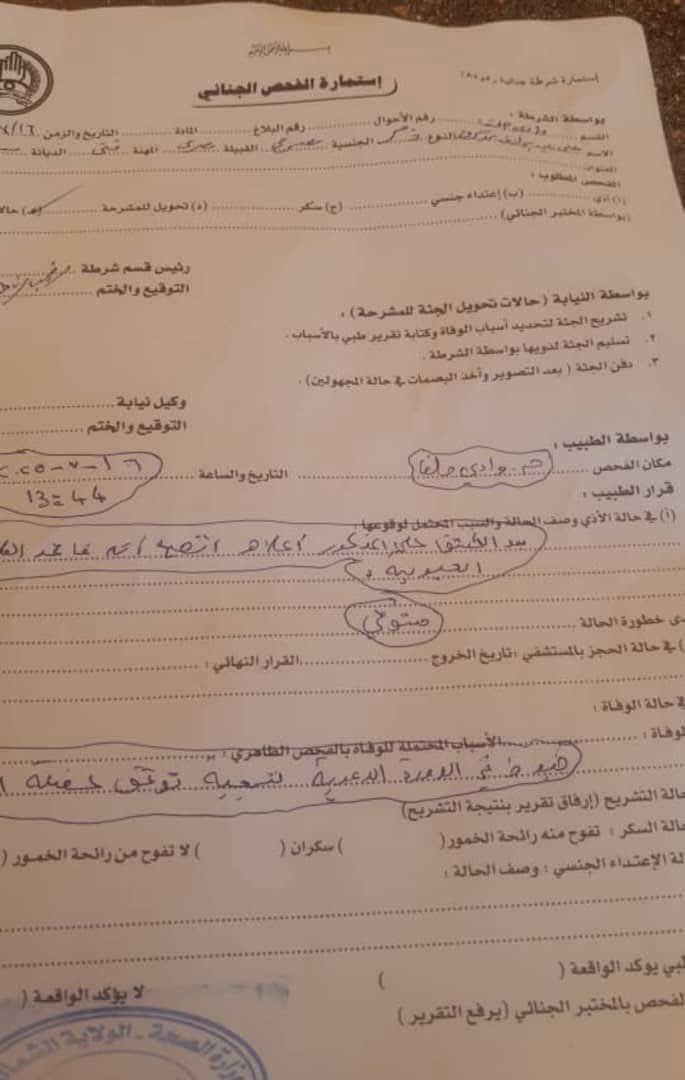 إستمارة شرطة جنائية
إستمارة الفحص الجنائي
بواسطة الشرطة :
القسم رقم الأحوال رقم البلاغ المادة التاريخ والزمن
الاسم النوع ذكر الجنسية مصري القبيلة مصري المهنة الديانة
العنوان
الفحص المطلوب :
(أ) أذى (ب) إعتداء جنسي (ج) سكر (د) تحويل للمشرحة (هـ)
(بواسطة المختبر الجنائي)
رئيس قسم شرطة
التوقيع والختم
بواسطة النيابة (حالات تحويل الجثة للمشرحة) :
١. تشريح الجثة لتحديد أسباب الوفاة وكتابة تقرير طبي بالأسباب .
٢. تسليم الجثة لذويها بواسطة الشرطة .
٣. دفن الجثة ( بعد التصوير وأخذ البصمات في حالة المجهولين) .
وكيل نيابة
التوقيع والختم
بواسطة الطبيب :
مكان الفحص وادي حلفا التاريخ والساعة ١٦-٧-
13=44
قرار الطبيب :
(أ) في حالة الأذي وصف الحالة والسبب المحتمل لوقوعها :
بعد الكشف المذكور أعلاه اتضح أنه فاقد
الحيوية
خطورة الحالة متوفي
في حالة الحجز بالمستشفي : تاريخ الخروج القرار النهائي :
حالة الوفاة :
الأسباب المحتملة للوفاة بالفحص الظاهري :
هبوط في الدورة الدموية نتيجة توقف عضلة
التشريح (إرفاق تقرير بنتيجة التشريح)
السكر : تفوح منه رائحة الخمور( ) سكران ( ) لا تفوح من رائحة الخمور (
الإعتداء الجنسي : وصف الحالة :
يوكد الواقعة ( )
لا يؤكد الواقعة (
الفحص بالمختبر الجنائي (يرفع التقرير )
وزارة الصحة - الولاية